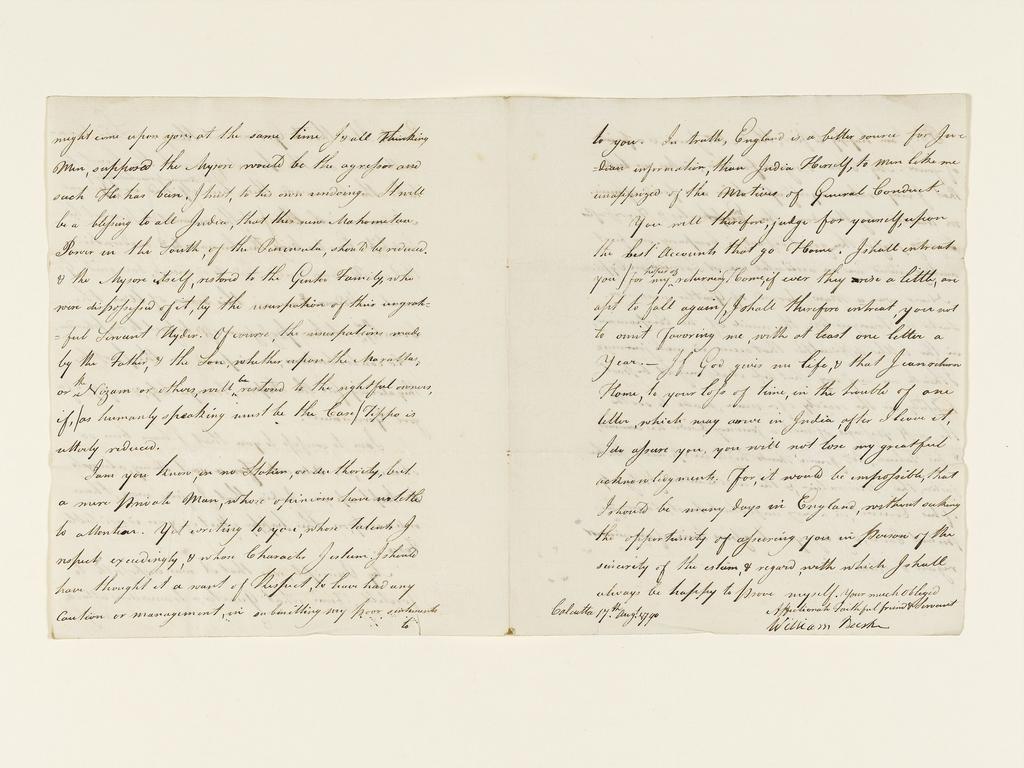 might come upon you, at the same time for all thinking
Men, supposed the Mysore would be the agressor and
such He has been, I trust, to his own undoing. It will
be a blessing to all India, that this new Mahometan
Power in the South, of the Peninsula, should be reduced.
& the Mysore itself, restord to the Gentu Family, who
were dispossessed of it, by the usurpation of their ungrate=
=ful Servant Hyder. Of course, the usurpations made
by the Father, & the Son, whether upon the Maratta,
or th Nizam or others, will be restord to the rightful owners,
if, /as humanly speaking must be the Case/ Tippo is
utterly reduced.
I am you know, in no Station, or authority, but
a mere private Man, whose opinions have no title
to attention. Yet writing to you, whose talents I
respect exceedingly, & whose Character I esteem. I should
have thought it a want of Respect, to have had any
caution or management, in submitting my poor sentiments
to
to you. In truth, England is a better source for In=
dian information, than India Herself, to men like me
unapprized of the Motives of General Conduct.
You will therefore, judge for yourself, upon
the best Accounts that go "Home". I shall entreat
you /for hopes of my returning Home, if ever they arise a little, are
apt to fall again/ I shall therefore entreat, you not
to omit favoring me, with at least one letter a
Year. — If God gives me life, & that I can return
Home, to your loss of time, in the trouble of one
letter, which may arrive in India after I leave it,
I do assure you, you will not lose my greatful
acknowledgments. For it would be impossible, that
I should be many days in England, without seeking
the opportunity of assuring you in person of the
sincerity of the esteem, & regard, with which I shall
always be happy to prove myself. Your much obliged
Affectionate faithful friend & Servant
Calcutta 17th Augt. 1790
William